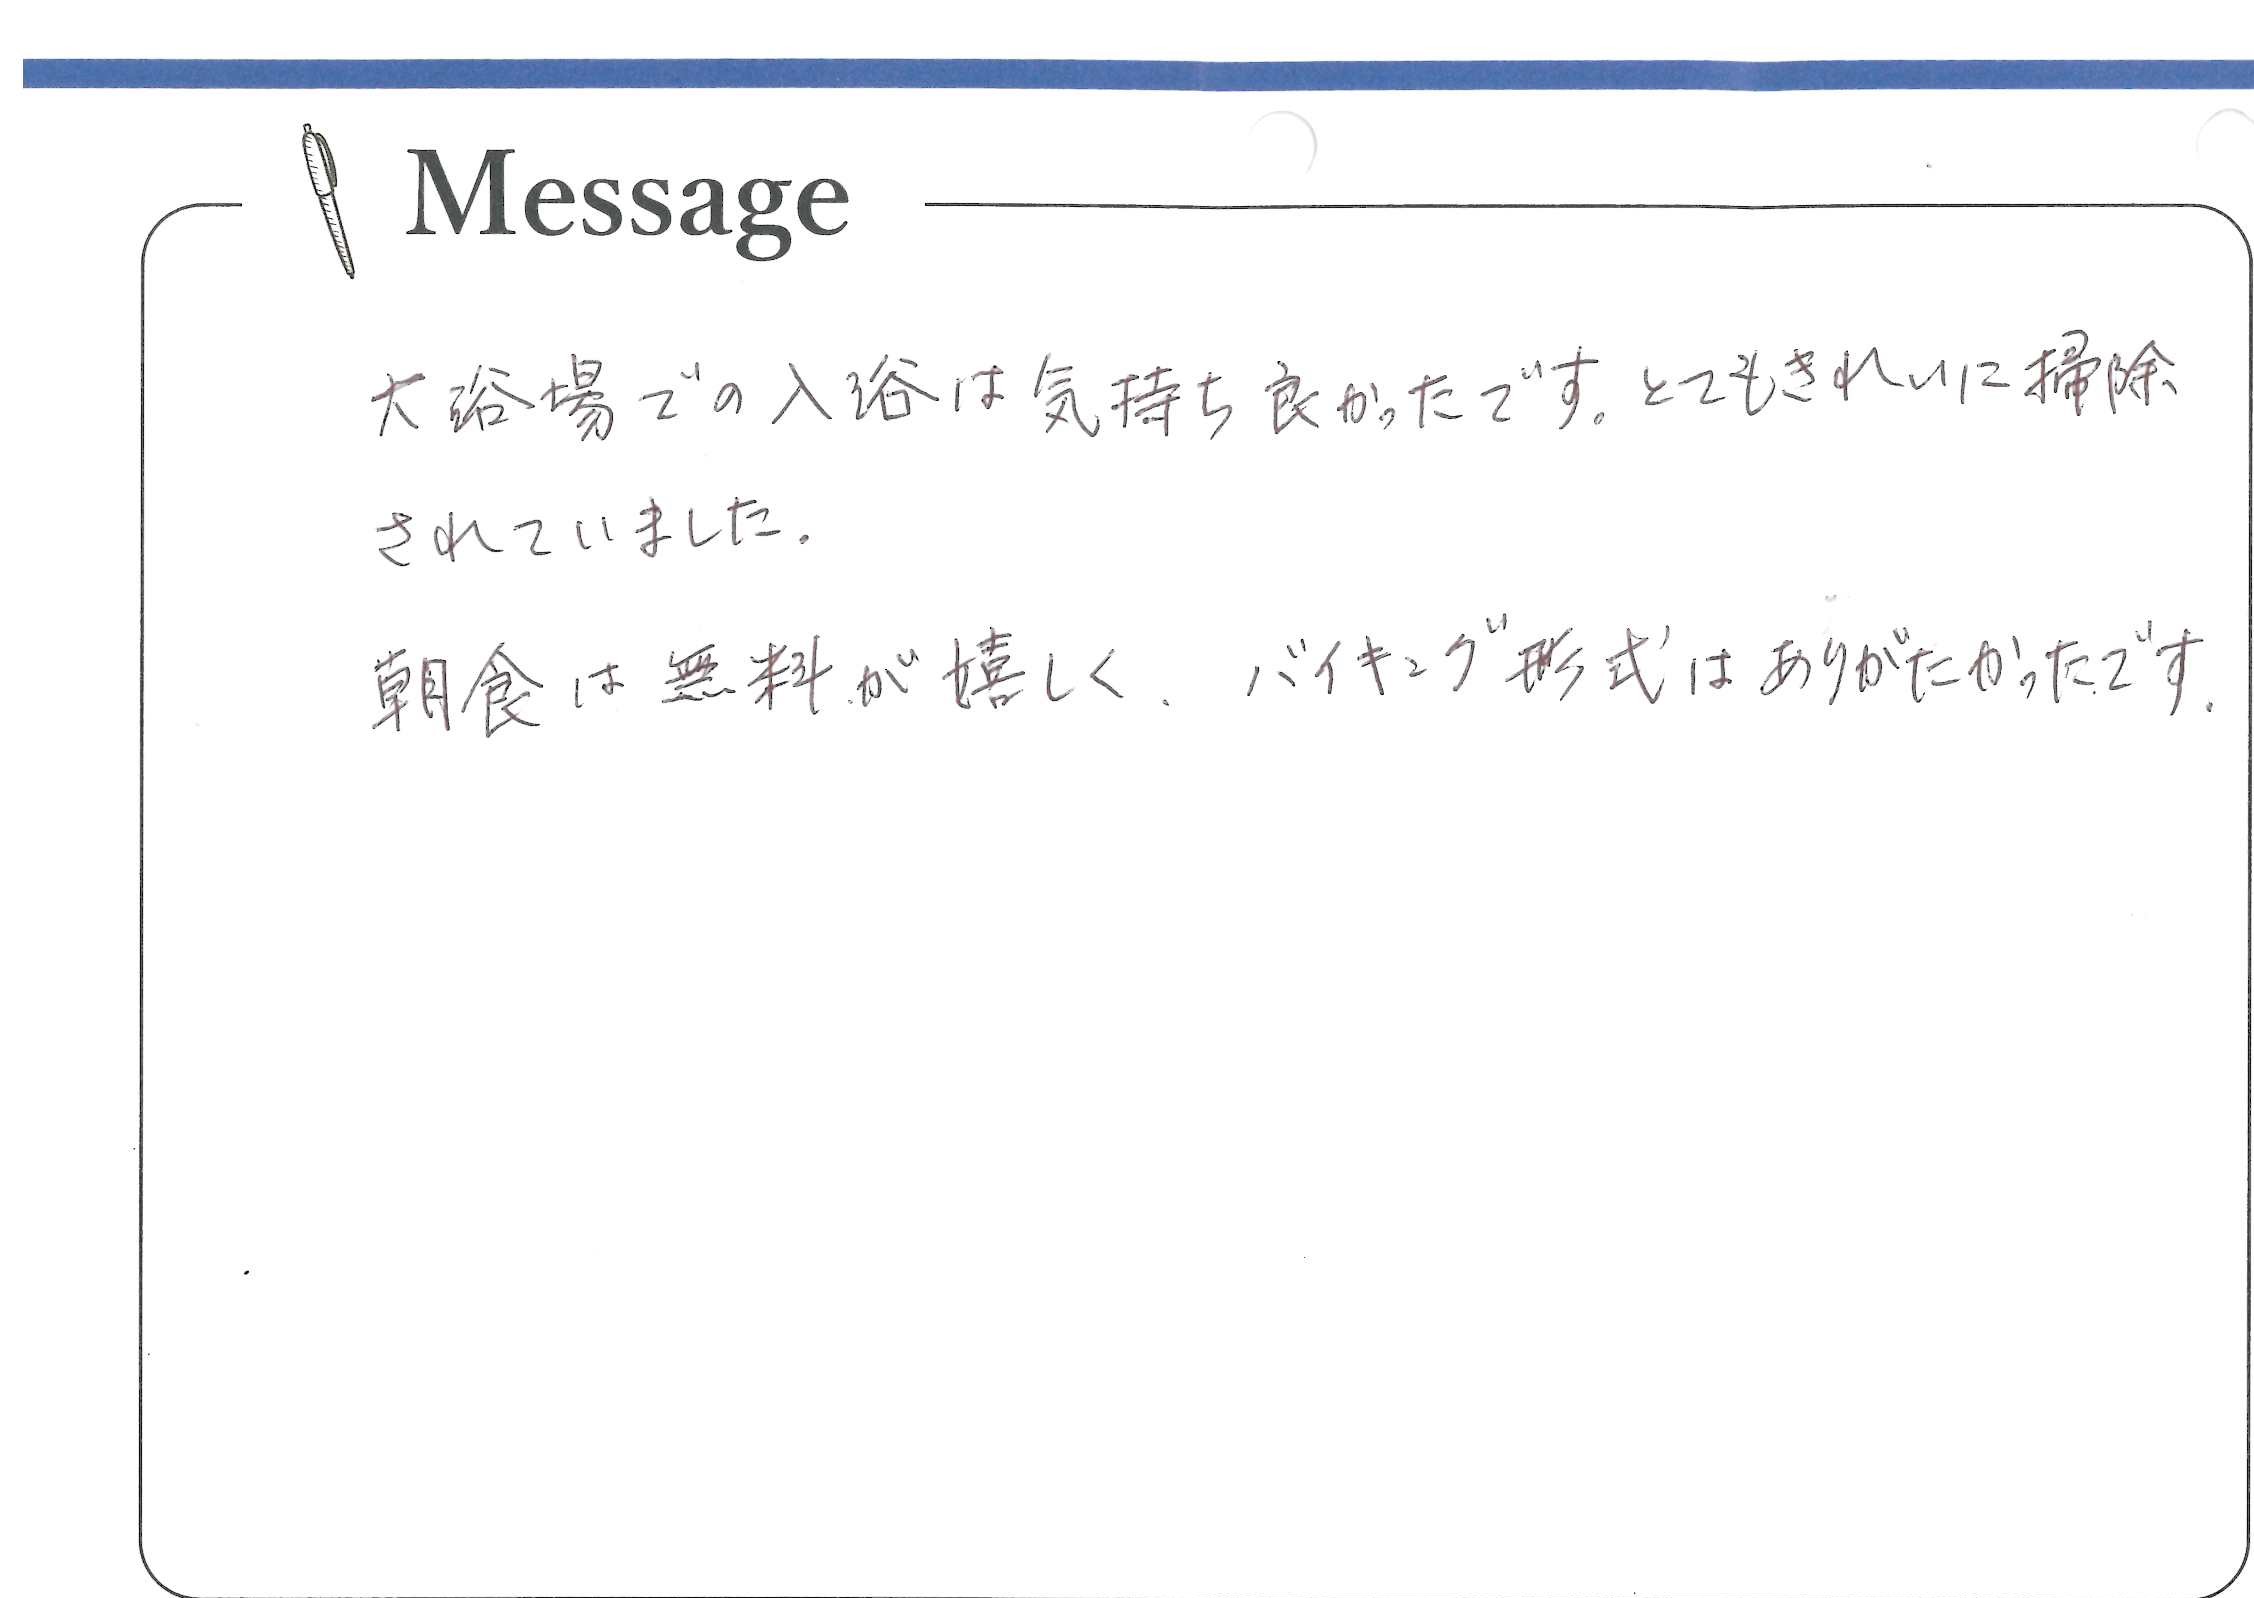 Message
大浴場での入浴は気持ち良かったです。とてもきれいに掃除
されていました.
朝食は無料が嬉しく、バイキング形式はありがたかったです.